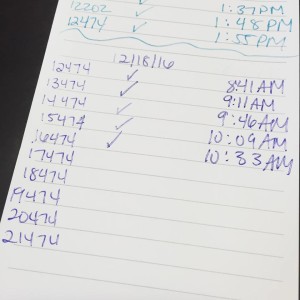 1:37PM
12202 ✓ 1:48PM
12474 ✓ 1:55PM
12/18/16
12474 ✓ 8:41AM
13474 ✓ 9:11AM
14474 ✓ 9:46AM
15474 ✓ 10:09AM
16474 ✓ 10:33AM
17474
18474
19474
20474
21474